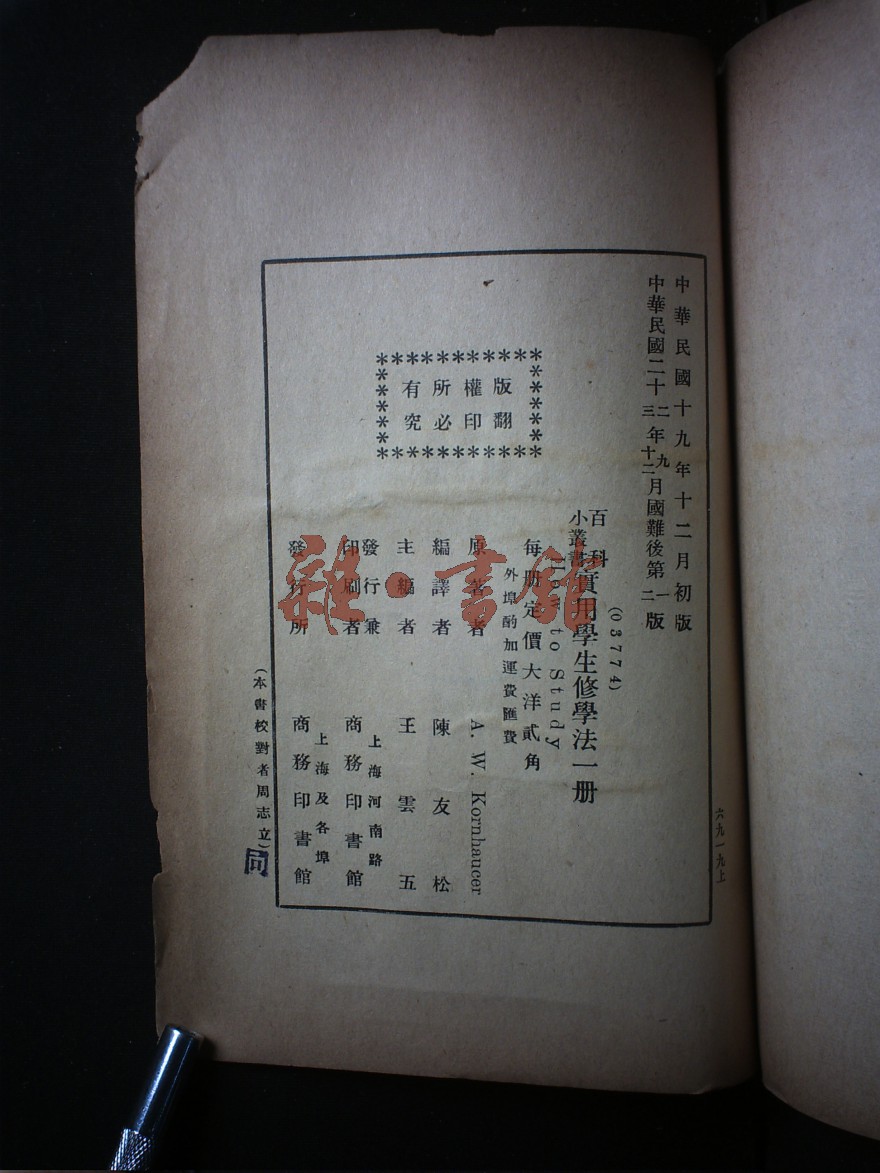 中華民國十九年十二月初版
中華民國二十二年九月國難後第一版
三 十二 二
(03774)
百科小叢書 實用學生修學法一册
How to Study
每册定價大洋貳角
外埠酌加運費匯費
版權所有
翻印必究
原著者 A. W. Kornhaucer
編譯者 陳友松
主編者 王雲五
發行兼印刷者 上海河南路 商務印書館
發行所 上海及各埠 商務印書館
(本書校對者周志立)
六九一九上
雜·書館